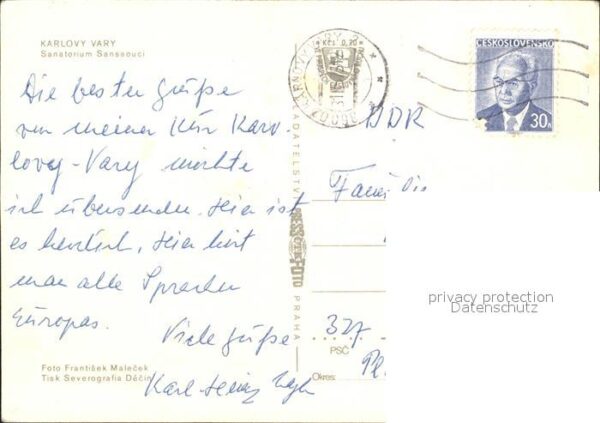 KARLOVY VARY
Sanatorium Sanssouci
Die besten Grüße
von meiner Kur Kar-
lovy-Vary möchte
ich übersenden. Hier ist
es herrlich, hier hört
man alle Sprachen
Europas.
Viele Grüße
Karl-Heinz
Foto František Maleček
Tisk Severografia Děčín
NAKLADATELSTVÍ
PRESSFOTO
PRAHA
Kčs 0,20
ČESKOSLOVENSKO
30h
DDR
327
PSČ
Okres:
privacy protection
Datenschutz